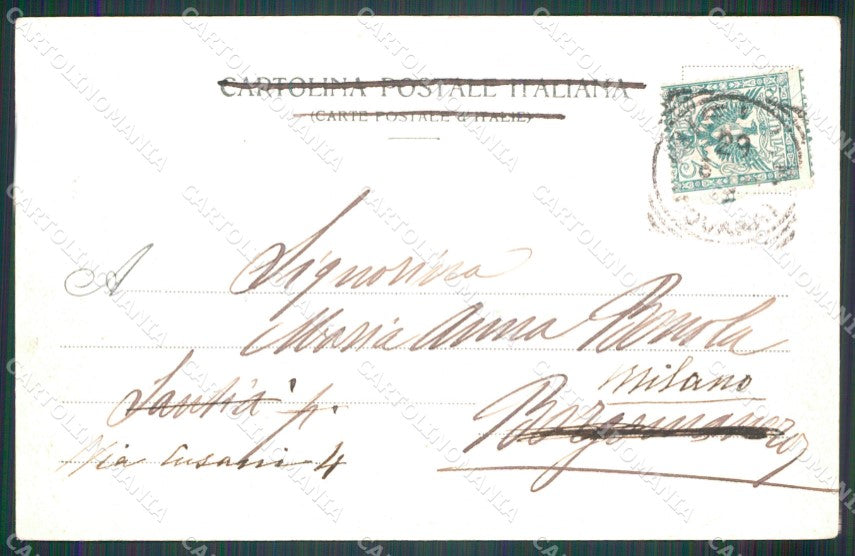 CARTOLINA POSTALE ITALIANA
(CARTE POSTALE d'ITALIE)
29
A Signorina
Maria Anna
Milano
Santià p. Borgomanero
Via Cusani 4
CARTOLINOMANIA